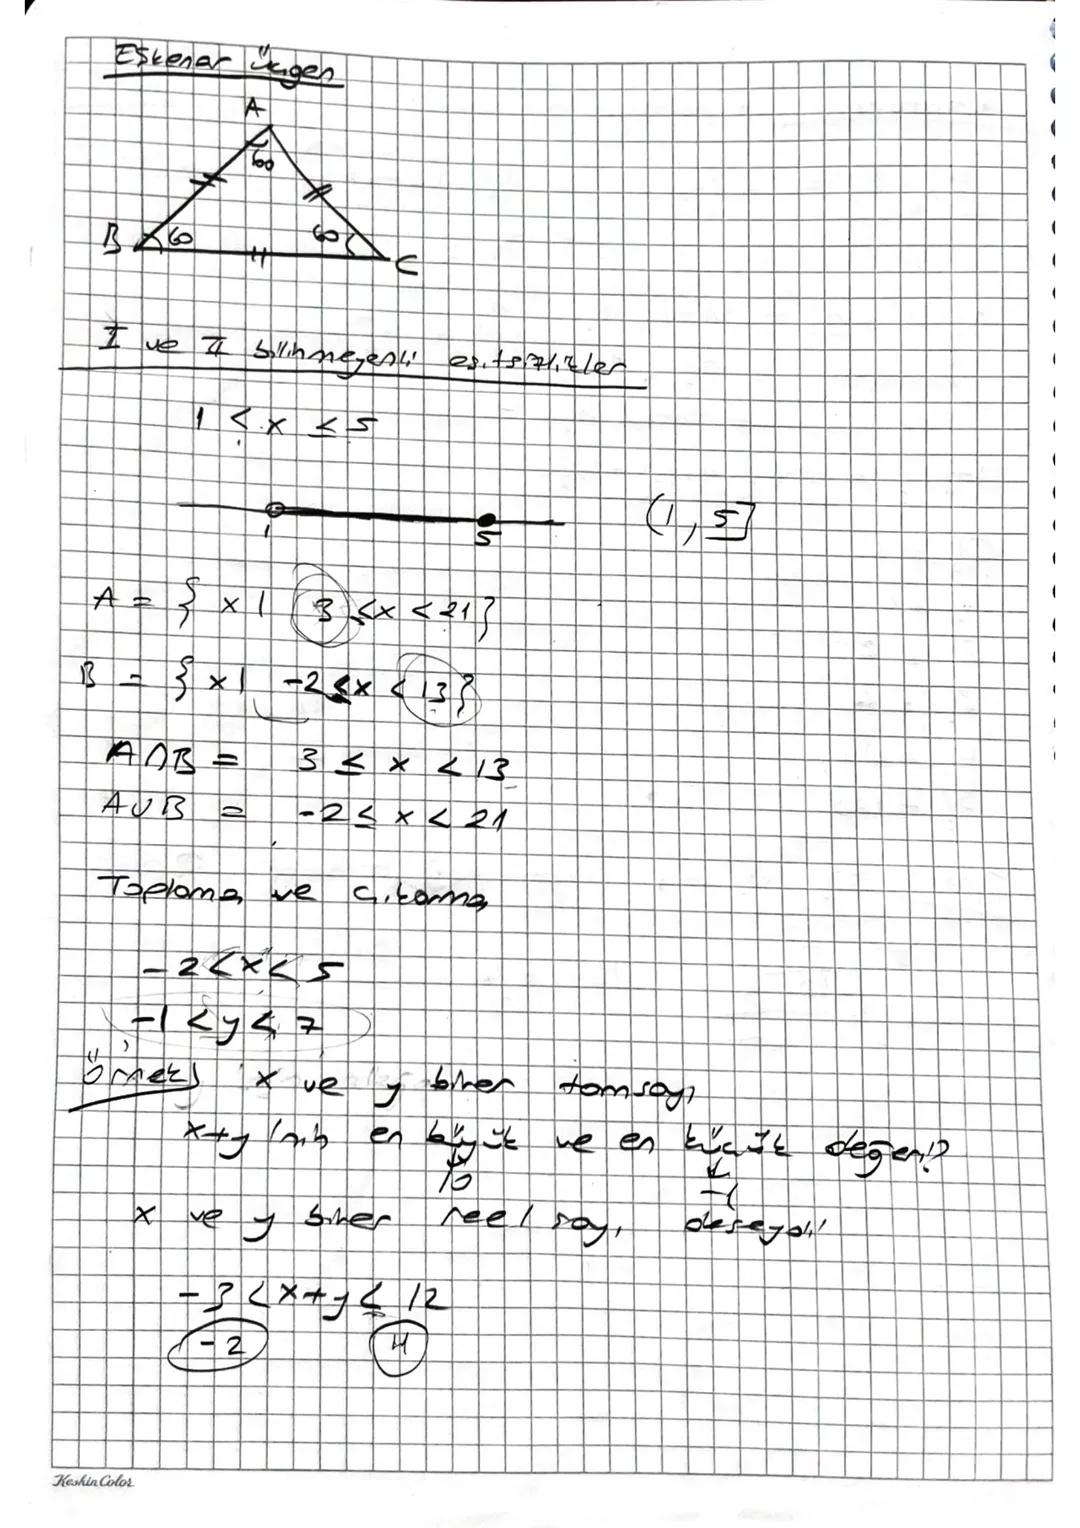 Eşkenar üçgen
A
60
B 60 60 C
I ve II bilinmeyenli eşitsizlikler
1 < x ≤ 5
1 5 (1, 5]
A = { x | 3 ≤ x < 21}
B = { x | -2 ≤ x < 13}
A∩B = 3 ≤ x < 13
A∪B = -2 ≤ x < 21
Toplama ve Çıkarma
-2 < x < 5
-1 < y < 7
örnek) x ve y birer tamsayı
x+y 'nin en büyük ve en küçük değeri?
10 -1
x ve y birer reel sayı deseydi
-3 < x+y ≤ 12
-2 11
Keskin Color